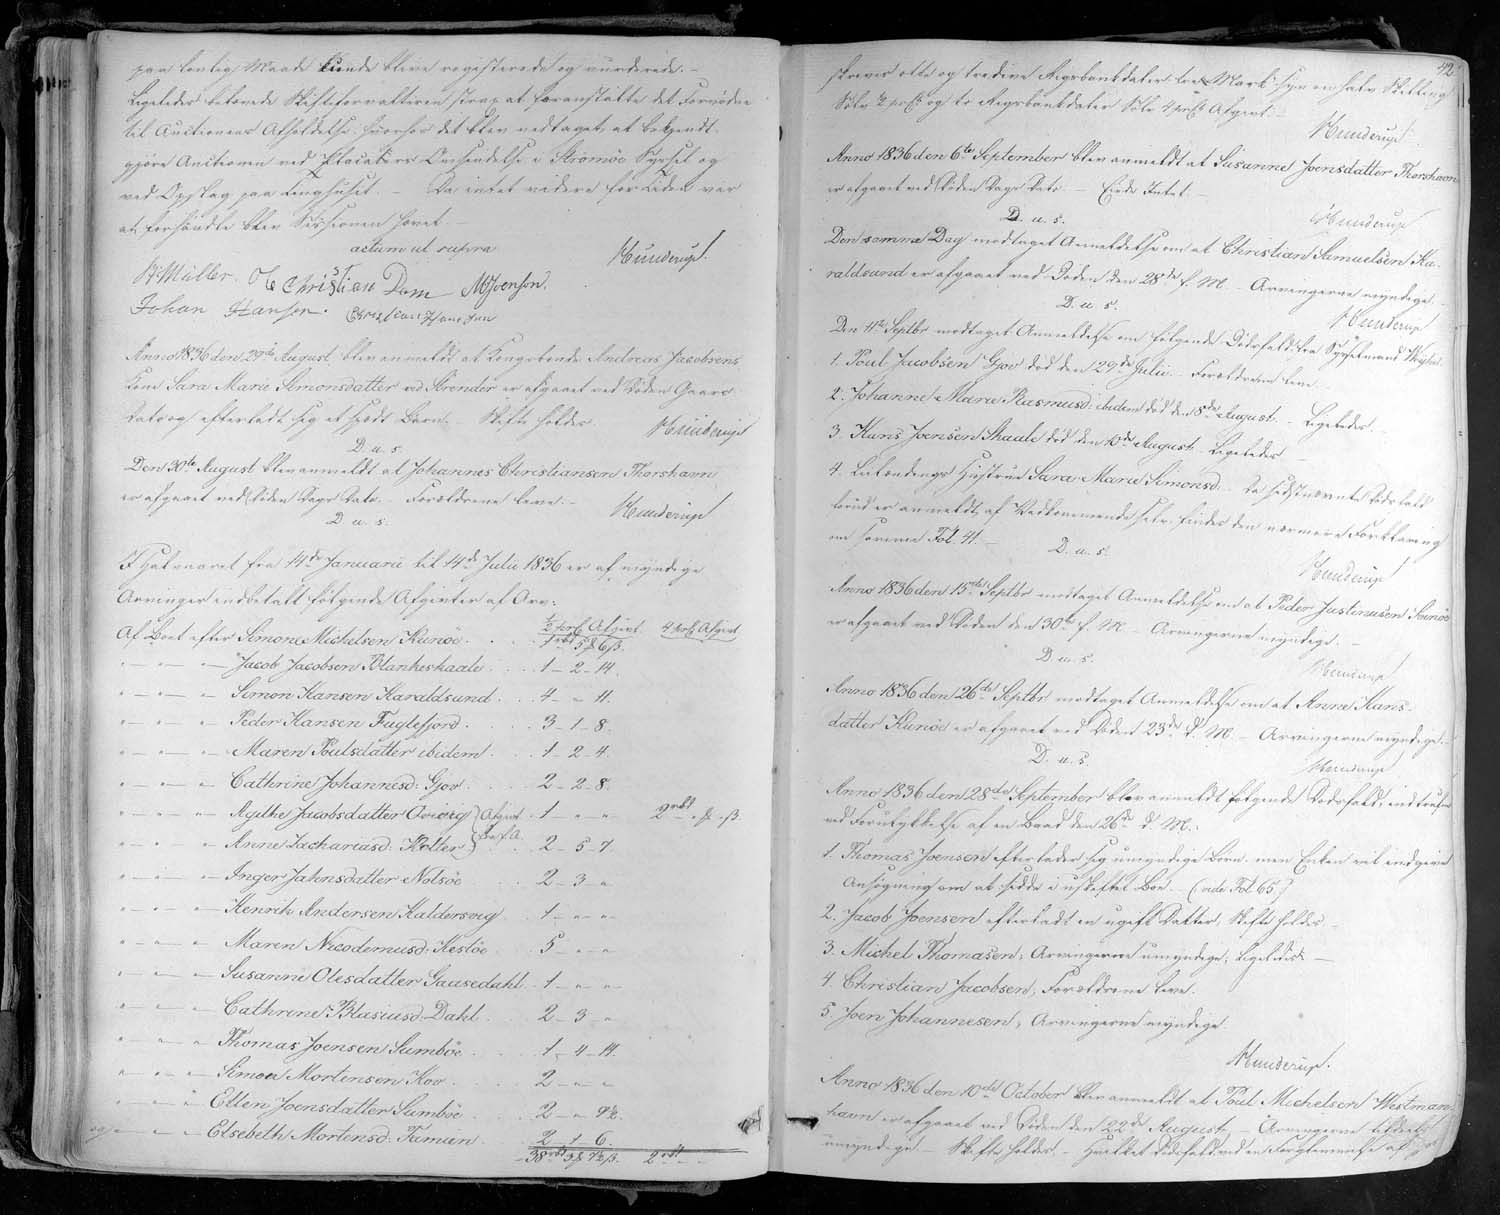 paa lovlig Maade kunde blive registerede og vurderede. –
Ligeledes belovede Skifteforvalteren strax at foranstalte det Fornødne
til Auctionens Afholdelse; hvorhos det blev vedtaget, at bekjendt-
gjøre Auctionen ved Placaters Omsendelse i Strömöe Syssel og
ved Opslag paa Tinghuset. – Da intet videre for Tiden var
at forhandle blev Sessionen hævet. –
actum ut supra
Hunderup.
H. Müller. Ole Christian Dam MJoenson.
Johan Hansen. Christian Hansen
Anno 1836 den 29de August blev anmeldt at Kongsbonde Andreas Jacobsens
Kone Sara Marie Simonsdatter ved Strender er afgaaet ved Döden
Dato og efterladt sig et spædt Barn. – Skifte holdes.
Hunderup
D. u. s.
Den 30te August blev anmeldt at Johannes Christiansen Thorshavn
er afgaaet ved Döden Dags Dato. – Forældrene leve. –
Hunderup
D. u. s.
I Halvaaret fra 14de Januarii til 14de Julii 1836 er af myndige
Arvinger indbetalt følgende Afgivter af Arv:
½ prCt Afgivt 4 prCt Afgivt
Af Boet efter Simone Michelsen Kunöe . . 1 rbd 5 ß 6 ß.
" — " — " — Jacob Jacobsen Blankeskaale . . 1 – 2 – 14.
" — " — " — Simon Hansen Haraldsund . . 4 – " 11.
" — " — " — Peder Hansen Fuglefjord . . 3 – 1 – 8.
" — " — " — Maren Poulsdatter ibidem . . 1 – 2 – 4.
" — " — " — Cathrine Johannesd. Gjov . . 2 – 2 – 8.
" — " — " — Agthe Jacobsdatter Qvivig Afgivt 1 – " – " 2 rbd " ß – ß.
" — " — " — Anne Zachariasd. Kolter . . 2 – 5 – 7
" — " — " — Inger Jahnsdatter Nolsöe . . 2 – 3 – "
" — " — " — Henrik Andersen Haldersvig . . 1 – " – "
" — " — " — Maren Nicodemusd. Hestöe . . 5 – " – "
" — " — " — Susanne Olesdatter Gaasedahl . 1 – " – "
" — " — " — Cathrine Blasiusd. Dahl . . 2 – 3 – "
" — " — " — Thomas Joensen Sumböe . . 1 – 4 – 14.
" — " — " — Simon Mortensen Hov . . 2 – " – "
" — " — " — Ellen Joensdatter Sumböe . . 2 – " 9½
og — " — " — Elsebeth Mortensd. Famien . . 2 – 1 – 6.
38 rbd 3 ß 7½ ß. 2 rbd " "
42
skriver otte og tredive Rigsbankdaler tre Mark syv en halv Skilling
Sölv ½ prCt og to Rigsbankdaler Sölv 4 prCt Afgivt. –
Hunderup.
Anno 1836 den 6te September blev anmeldt at Susanne Joensdatter Thorshavn
er afgaaet ved Döden Dags Dato. – Eiede Intet. –
Hunderup
D. u. s.
Den samme Dag modtaget Anmeldelse om at Christian Samuelsen Ha-
raldsund er afgaaet ved Döden den 28de f. M. – Arvingerne myndige. –
Hunderup
D. u. s.
Den 11te Septbr modtaget Anmeldelse om følgende Dödsfald fra Sysselmand
1. Poul Jacobsen Gjov död den 29de Julii. – Forældrene leve. –
2. Johanne Marie Rasmusd. ibidem död den 8de August. – Ligeledes. –
3. Hans Joensen Skaale död den 10de August. – Ligeledes –
4. Hustrue Sara Marie Simonsd. – Da sidstnævnte Dödsfald
forud er anmeldt af Vedkommende selv, findes den nærmere Forklaring
om samme Fol. 41. –
Hunderup
D. u. s.
Anno 1836 den 15de Septbr modtaget Anmeldelse om at Peder Justinusen
er afgaaet ved Döden den 30te f. M. – Arvingerne myndige. –
Hunderup
D. u. s.
Anno 1836 den 26de Septbr modtaget Anmeldelse om at Anne Hans-
datter Kunöe er afgaaet ved Döden 23de d. M. – Arvingerne myndige. –
Hunderup
D. u. s.
Anno 1836 den 28de September blev anmeldt følgende Dödsfald, indtrufne
ved Forulykkelse af en Baad den 26de d. M.:
1. Thomas Joensen efterlader sig umyndige Börn, men Enken vil indgive
Ansøgning om at sidde i uskiftet Boe. – (vide Fol. 65.)
2. Jacob Joensen efterladt en ugift Datter; Skifte holdes. –
3. Michel Thomasen, Arvingerne umyndige; ligeledes. –
4. Christian Jacobsen, Forældrene leve.
5. Joen Johannesen, Arvingerne myndige.
Hunderup.
Anno 1836 den 10de October blev anmeldt at Poul Michelsen Westman-
havn er afgaaet ved Döden den 22de August. – Arvingerne tildeels
umyndige. – Skifte holdes. – Hvilket Dödsfald ved en Forglemmelse af